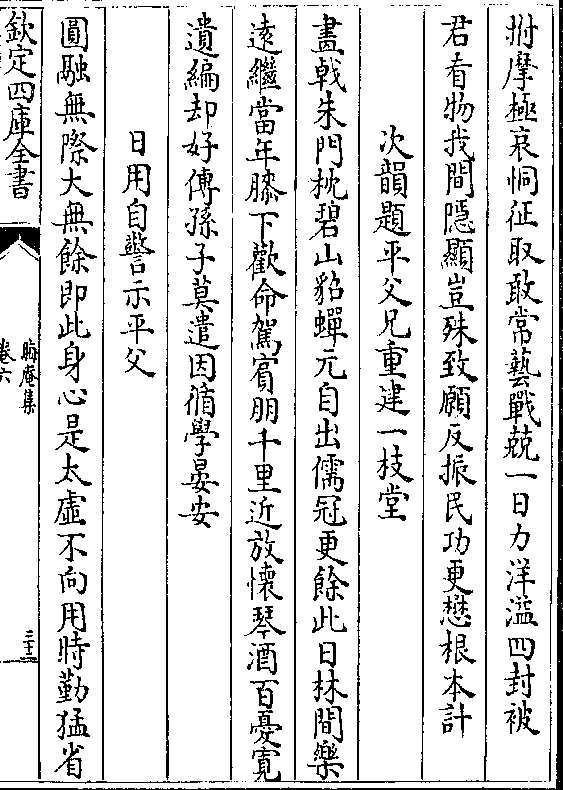 拊摩極哀恫征取敢常藝戰兢一日力洋溢四封被
君看物我間隱顯豈殊致願反振民功更懋根本計
次韻題平父兄重建一枝堂
畫戟朱門枕碧山貂蟬元自出儒冠更餘此日林間樂
遠繼當年膝下歡命駕賓朋千里近放懷琴酒百憂寛
遺編却好傳孫子莫遣因循學晏安
日用自警示平父
圓融無際大無餘即此身心是太虛不向用時勤猛省
欽定四庫全書
晦庵集
卷六